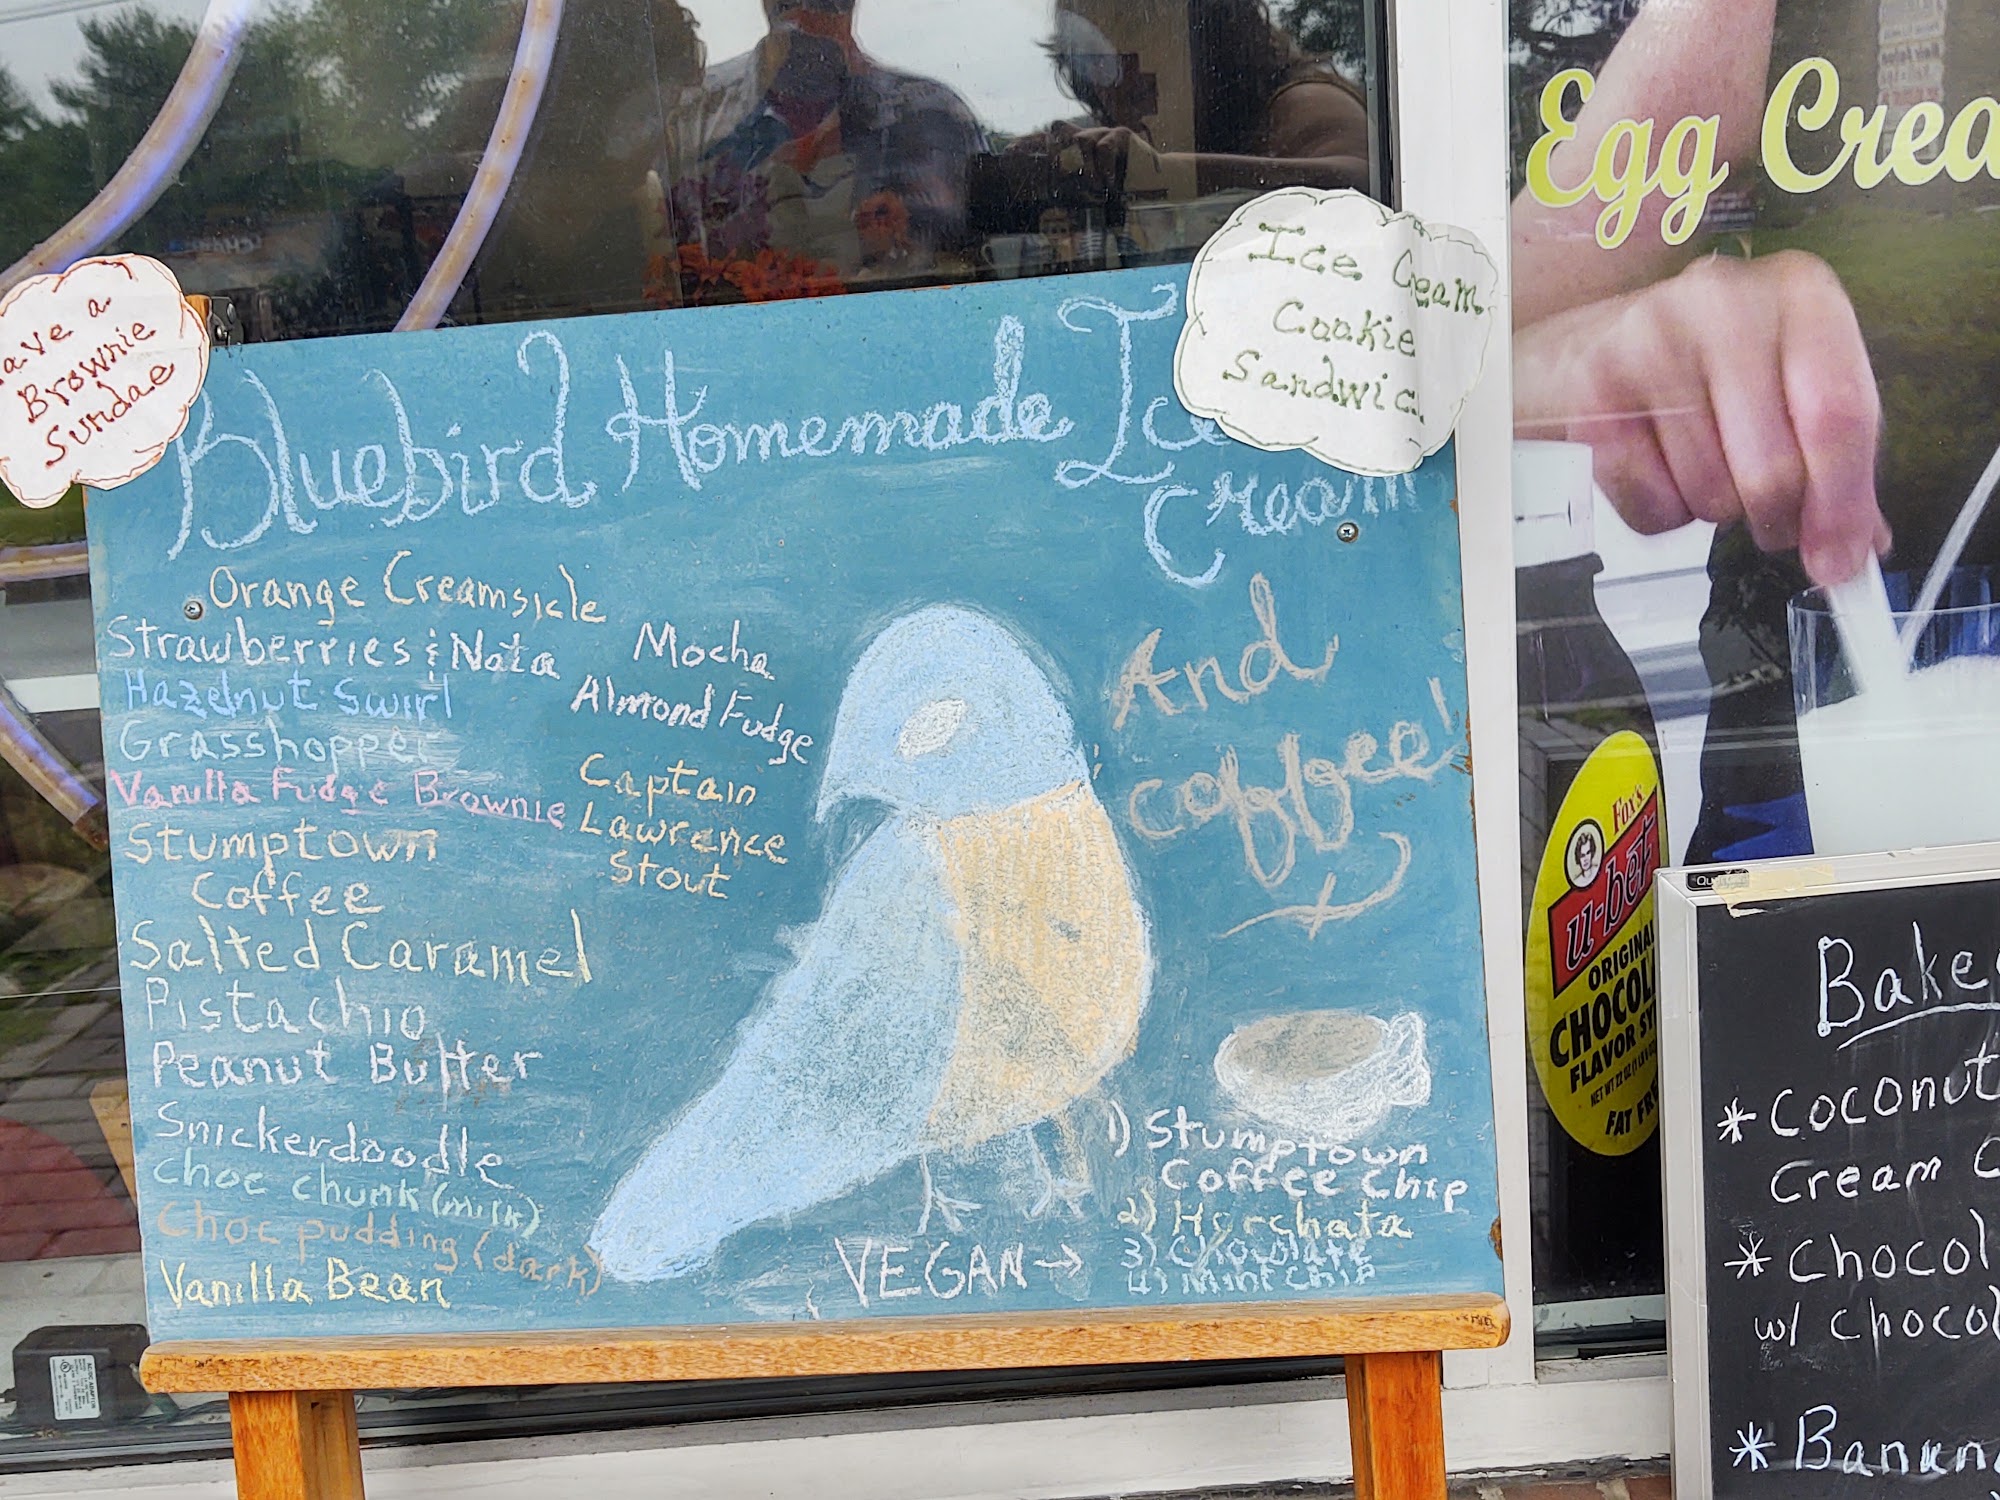 ave a
Brownie
Sundae
Ice Cream
Cookie
Sandwic
Bluebird Homemade Ice
Cream
Orange Creamsicle
Strawberries & Nata
Hazelnut Swirl
Grasshopper
Vanilla Fudge Brownie
Stumptown
Coffee
Salted Caramel
Pistachio
Peanut Butter
Snickerdoodle
Choc chunk (milk)
Choc pudding (dark)
Vanilla Bean
Mocha
Almond Fudge
Captain
Lawrence
Stout
And
coffee!
VEGAN →
1) Stumptown
Coffee Chip
2) Horchata
3) Chocolate
4) Mint Chip
Egg Crea
Fox's
u-bet
ORIGINAL
CHOCOL
FLAVOR SY
FAT FRE
Bake
* Coconut
Cream C
* Chocol
w/ chocol
* Banan